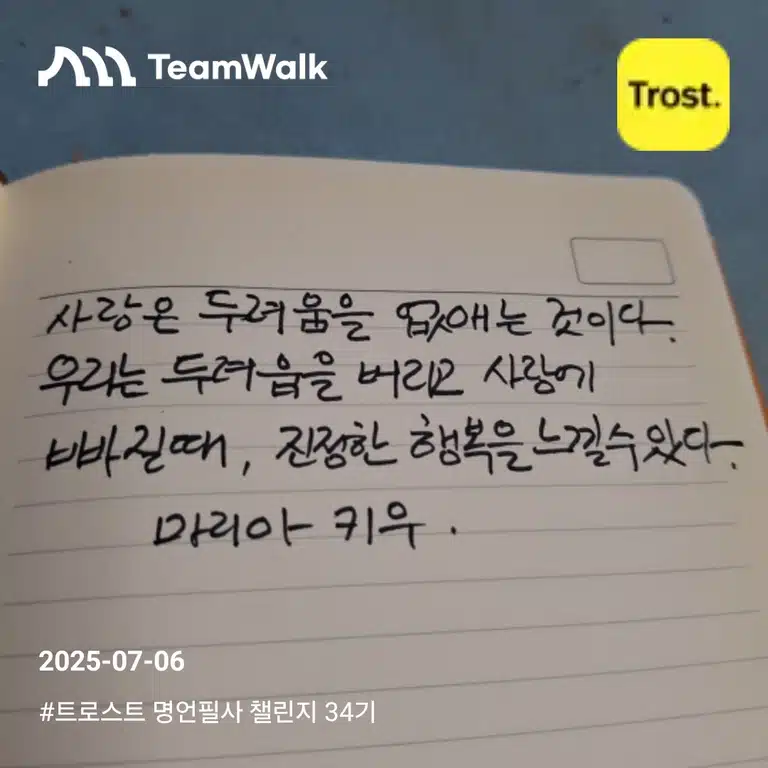 TeamWalk
Trost.
사랑은 두려움을 없애는 것이다.
우리는 두려움을 버리고 사랑에
빠질때, 진정한 행복을 느낄수있다.
마리아 키우.
2025-07-06
#트로스트 명언필사 챌린지 34기